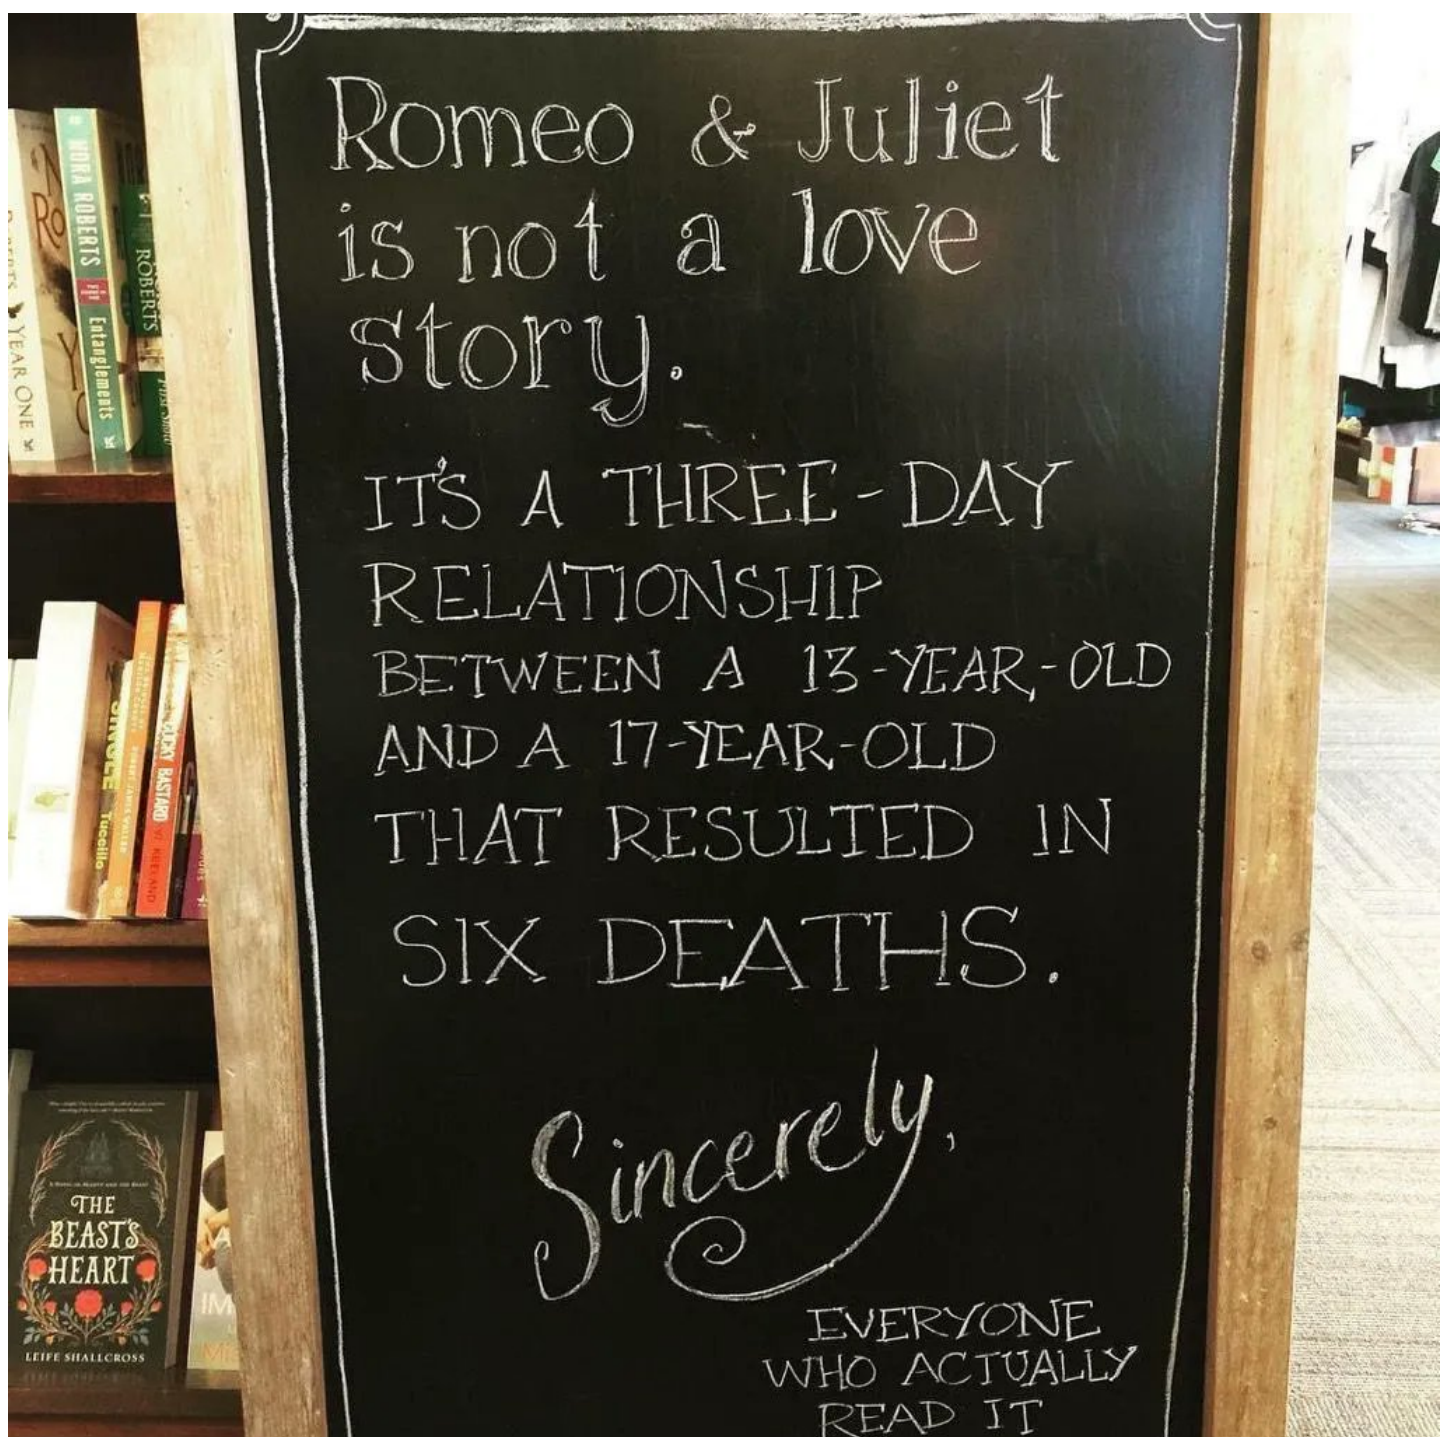 Romeo & Juliet
is not a love
story.
IT'S A THREE-DAY
RELATIONSHIP
BETWEEN A 13-YEAR-OLD
AND A 17-YEAR-OLD
THAT RESULTED IN
SIX DEATHS.
Sincerely,
EVERYONE
WHO ACTUALLY
READ IT
YEAR ONE
NORA ROBERTS
Entanglements
ROBERTS
SINGLE
Tuccillo
BASTARD
VI KEELAND
THE
BEAST'S
HEART
LEIFE SHALLCROSS